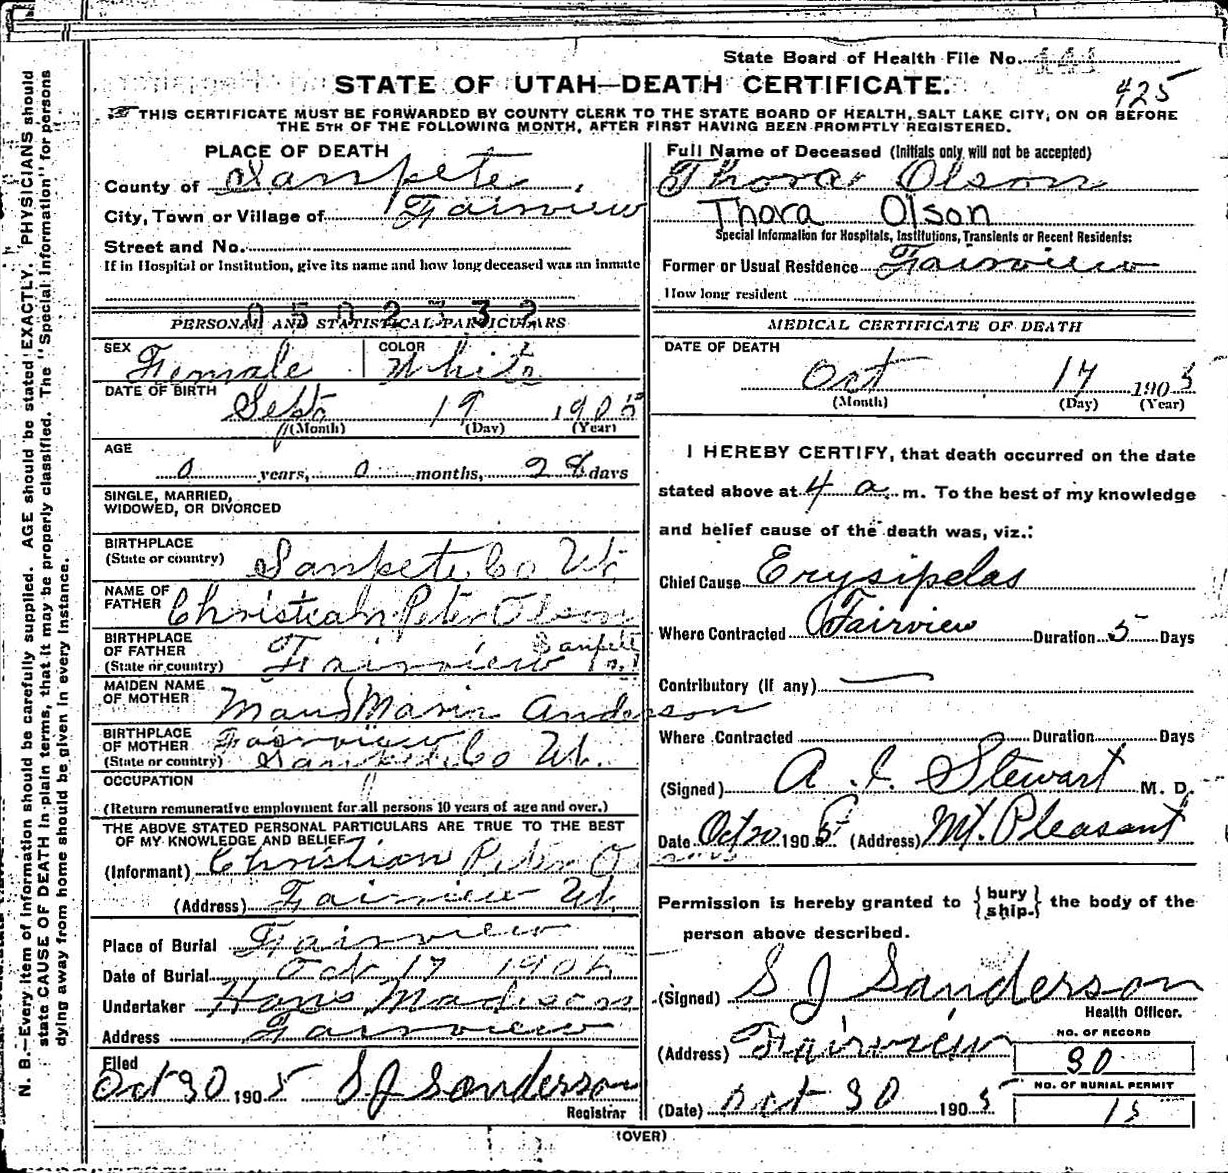 State Board of Health File No.
STATE OF UTAH—DEATH CERTIFICATE.
425
THIS CERTIFICATE MUST BE FORWARDED BY COUNTY CLERK TO THE STATE BOARD OF HEALTH, SALT LAKE CITY, ON OR BEFORE
THE 5TH OF THE FOLLOWING MONTH, AFTER FIRST HAVING BEEN PROMPTLY REGISTERED.
N. B.—Every item of information should be carefully supplied. AGE should be stated EXACTLY. PHYSICIANS should
state CAUSE OF DEATH in plain terms, that it may be properly classified. The "Special Information" for persons
dying away from home should be given in every instance.
PLACE OF DEATH
County of Sanpete
City, Town or Village of Fairview
Street and No.
If in Hospital or Institution, give its name and how long deceased was an inmate
PERSONAL AND STATISTICAL PARTICULARS
SEX Female COLOR White
DATE OF BIRTH Sept 19 1905
(Month) (Day) (Year)
AGE
0 years, 0 months, 28 days
SINGLE, MARRIED,
WIDOWED, OR DIVORCED
BIRTHPLACE
(State or country) Sanpete Co Ut.
NAME OF
FATHER Christian Peter Olson
BIRTHPLACE
OF FATHER
(State or country) Fairview Sanpete
MAIDEN NAME
OF MOTHER Maud Maria Anderson
BIRTHPLACE
OF MOTHER Fairview
(State or country) Sanpete Co Ut.
OCCUPATION
(Return remunerative employment for all persons 10 years of age and over.)
THE ABOVE STATED PERSONAL PARTICULARS ARE TRUE TO THE BEST
OF MY KNOWLEDGE AND BELIEF
(Informant) Christian Peter O
(Address) Fairview Ut.
Place of Burial Fairview
Date of Burial Oct 17 1905
Undertaker Hans Madison
Address Fairview
Filed
Oct 30 1905 S J Sanderson
Registrar
Full Name of Deceased (Initials only will not be accepted)
Thora Olson
Thora Olson
Special Information for Hospitals, Institutions, Transients or Recent Residents:
Former or Usual Residence Fairview
How long resident
MEDICAL CERTIFICATE OF DEATH
DATE OF DEATH
Oct 17 1905
(Month) (Day) (Year)
I HEREBY CERTIFY, that death occurred on the date
stated above at 4 a. m. To the best of my knowledge
and belief cause of the death was, viz.:
Chief Cause Erysipelas
Where Contracted Fairview Duration 5 Days
Contributory (if any)
Where Contracted Duration Days
(Signed) A. Stewart M. D.
Date Oct 20 1905 (Address) Mt. Pleasant
Permission is hereby granted to {bury
ship.} the body of the
person above described.
(Signed) S J Sanderson
Health Officer.
(Address) Fairview
NO. OF RECORD
30
(Date) Oct 30 1905
NO. OF BURIAL PERMIT
15
(OVER)